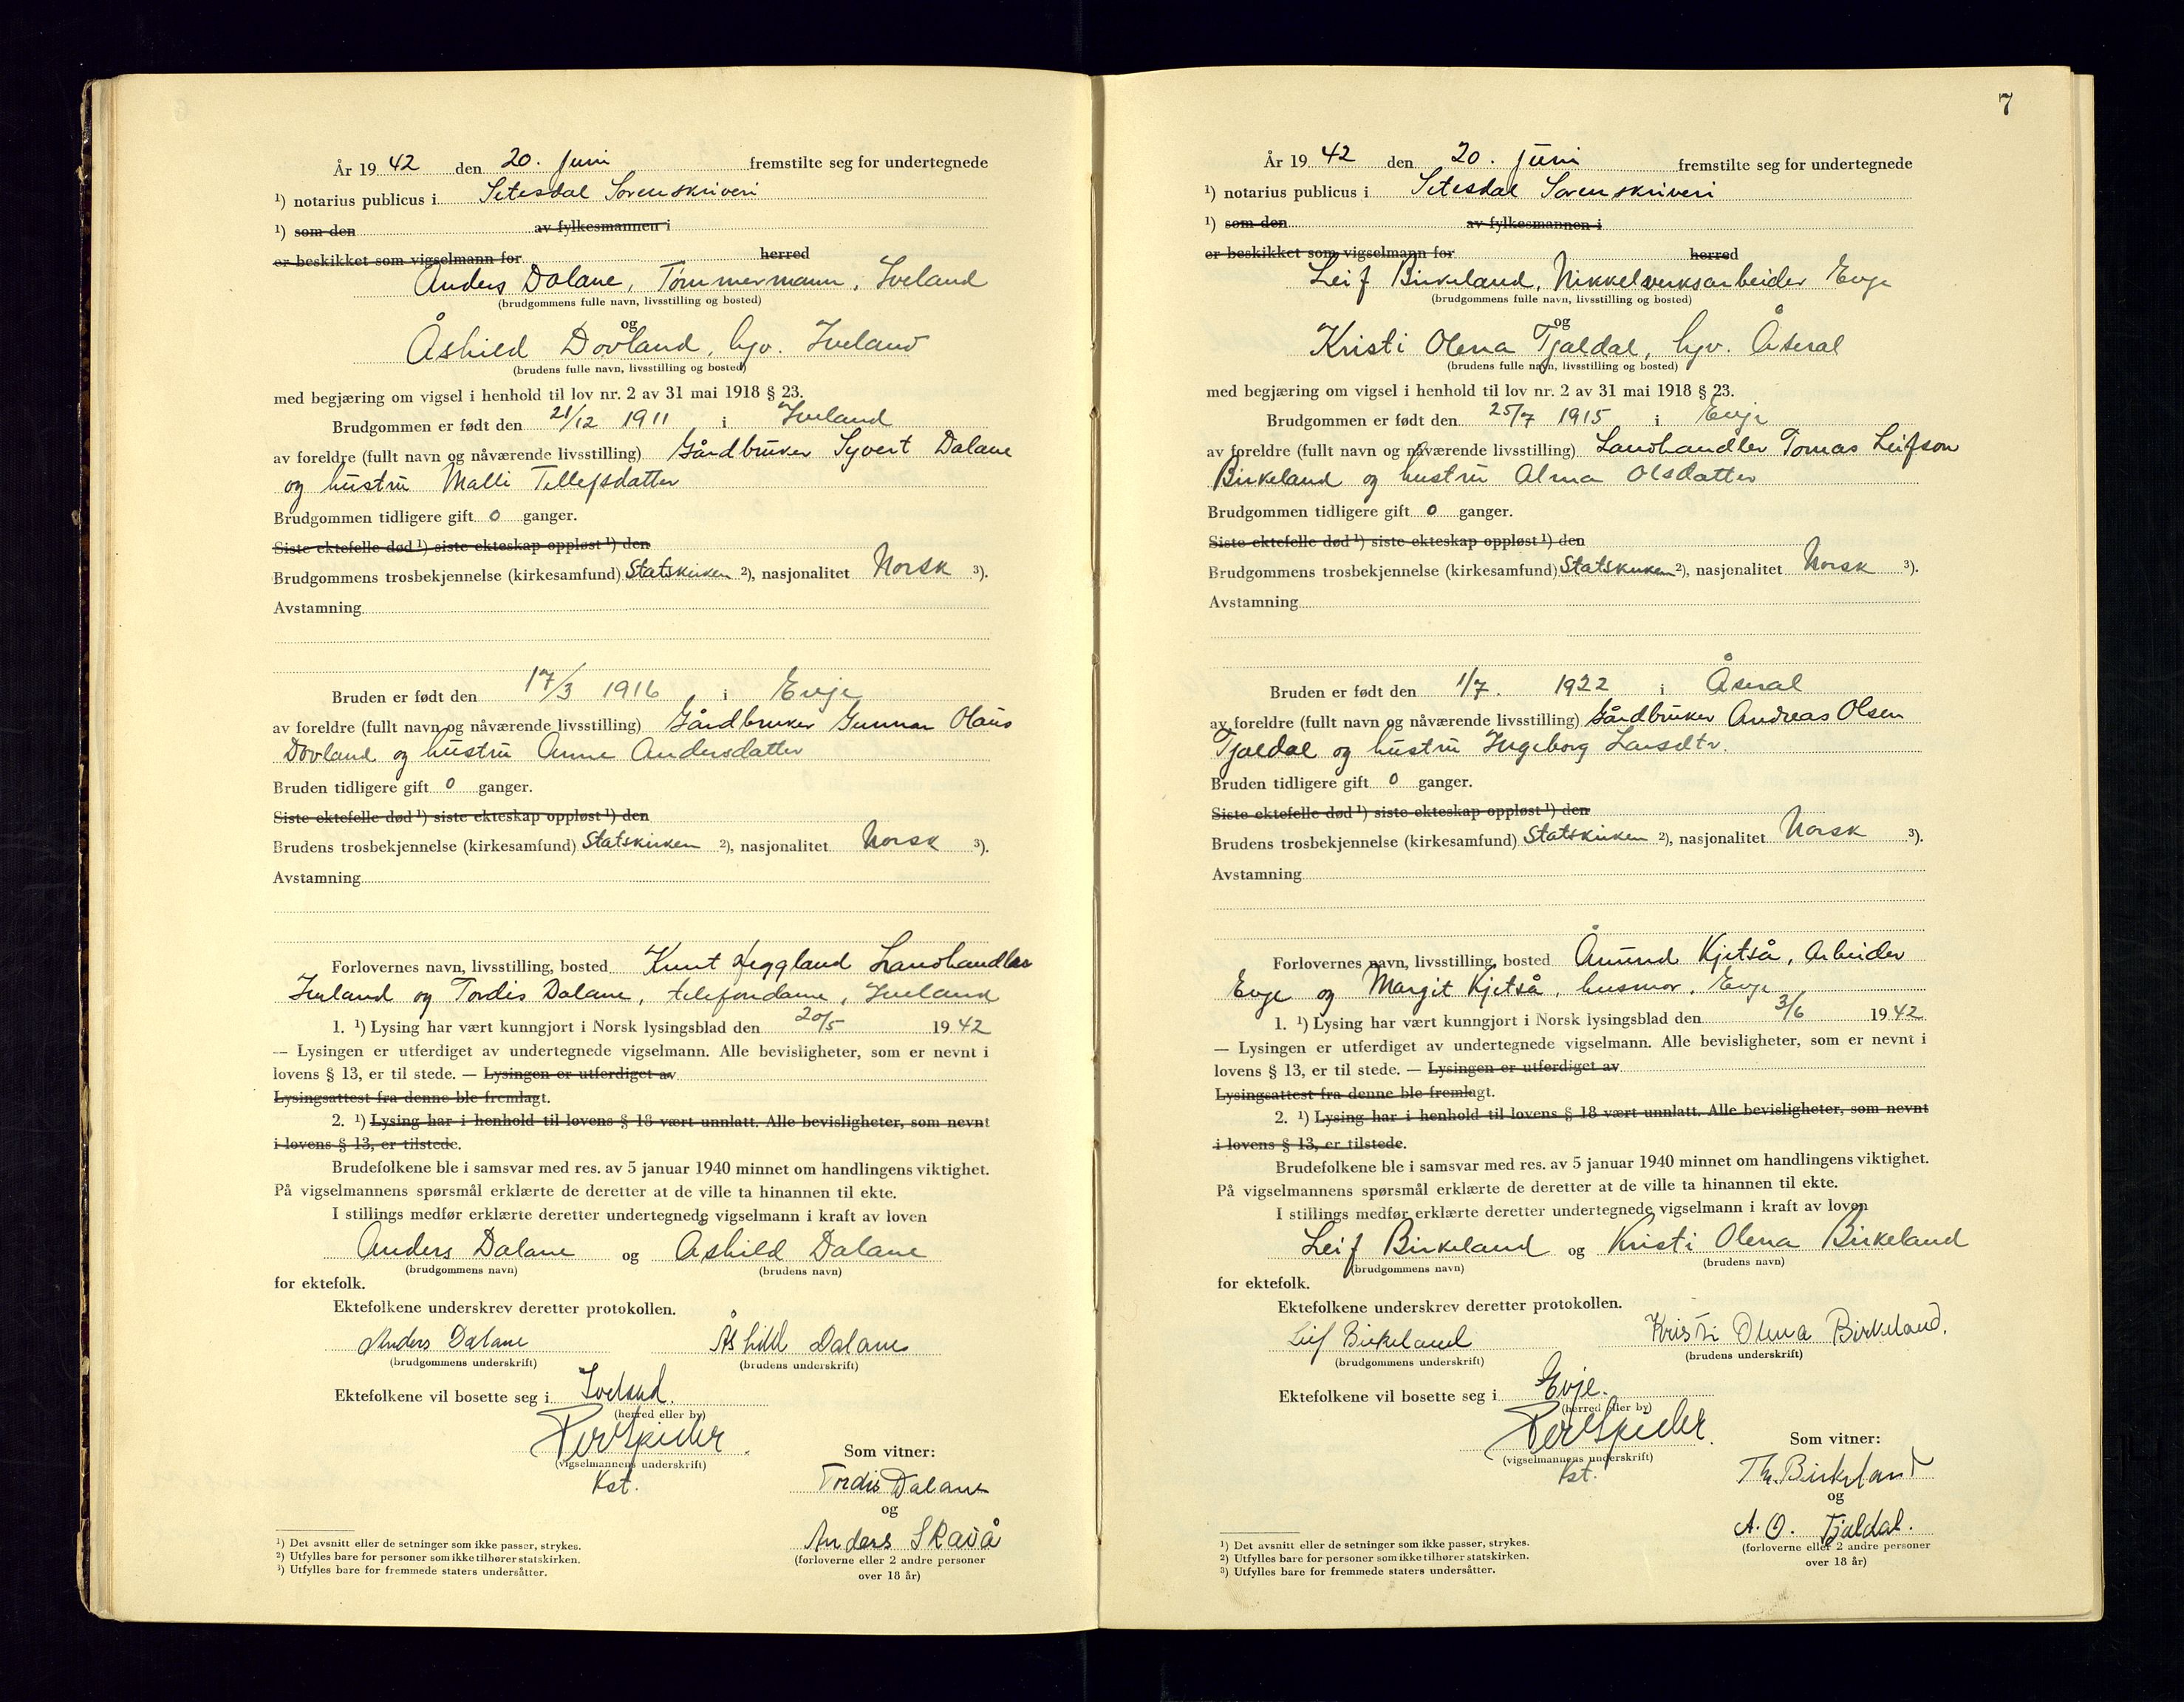 År 19 42 den 20. Juni fremstilte seg for undertegnede
¹) notarius publicus i Setesdal Sorenskriveri
¹) som den av fylkesmannen i
er beskikket som vigselmann for herred
Anders Dalane, Tømmermann, Iveland
(brudgommens fulle navn, livsstilling og bosted)
og
Åshild Dovland, hjv. Iveland
(brudens fulle navn, livsstilling og bosted)
med begjæring om vigsel i henhold til lov nr. 2 av 31 mai 1918 § 23.
Brudgommen er født den 21/12 1911 i Iveland
av foreldre (fullt navn og nåværende livsstilling) Gårdbruker Syvert Dalane
og hustru Malli Tellefsdatter
Brudgommen tidligere gift 0 ganger.
Siste ektefelle død ¹) siste ekteskap oppløst ¹) den
Brudgommens trosbekjennelse (kirkesamfund) Statskirken ²), nasjonalitet Norsk ³).
Avstamning
Bruden er født den 17/3 1916 i Evje
av foreldre (fullt navn og nåværende livsstilling) Gårdbruker Gunnar Olaus
Dovland og hustru Anne Andersdatter
Bruden tidligere gift 0 ganger.
Siste ektefelle død ¹) siste ekteskap oppløst ¹) den
Brudens trosbekjennelse (kirkesamfund) Statskirken ²), nasjonalitet Norsk ³).
Avstamning
Forlovernes navn, livsstilling, bosted Knut Heggland Landhandler
Iveland og Tordis Dalane, telefondame, Iveland
1. ¹) Lysing har vært kunngjort i Norsk lysingsblad den 20/5 19 42
— Lysingen er utferdiget av undertegnede vigselmann. Alle bevisligheter, som er nevnt i
lovens § 13, er til stede. — Lysingen er utferdiget av
Lysingsattest fra denne ble fremlagt.
2. ¹) Lysing har i henhold til lovens § 18 vært unnlatt. Alle bevisligheter, som nevnt
i lovens § 13, er tilstede.
Brudefolkene ble i samsvar med res. av 5 januar 1940 minnet om handlingens viktighet.
På vigselmannens spørsmål erklærte de deretter at de ville ta hinannen til ekte.
I stillings medfør erklærte deretter undertegnede vigselmann i kraft av loven
Anders Dalane og Åshild Dalane
(brudgommens navn) (brudens navn)
for ektefolk.
Ektefolkene underskrev deretter protokollen.
Anders Dalane Åshild Dalane
(brudgommens underskrift) (brudens underskrift)
Ektefolkene vil bosette seg i Iveland.
(herred eller by)
(vigselmannens underskrift)
Kst.
Som vitner:
Tordis Dalane
og
Anders Skaiå
(forloverne eller 2 andre personer
over 18 år)
¹) Det avsnitt eller de setninger som ikke passer, strykes.
²) Utfylles bare for personer som ikke tilhører statskirken.
³) Utfylles bare for fremmede staters undersåtter.
7
År 19 42 den 20. Juni fremstilte seg for undertegnede
¹) notarius publicus i Setesdal Sorenskriveri
¹) som den av fylkesmannen i
er beskikket som vigselmann for herred
Leif Birkeland, Nikkelverksarbeider Evje
(brudgommens fulle navn, livsstilling og bosted)
og
Kristi Olena Tjaldal, hjv. Åseral
(brudens fulle navn, livsstilling og bosted)
med begjæring om vigsel i henhold til lov nr. 2 av 31 mai 1918 § 23.
Brudgommen er født den 25/7 1915 i Evje
av foreldre (fullt navn og nåværende livsstilling) Landhandler Tomas Leifson
Birkeland og hustru Alma Olsdatter
Brudgommen tidligere gift 0 ganger.
Siste ektefelle død ¹) siste ekteskap oppløst ¹) den
Brudgommens trosbekjennelse (kirkesamfund) Statskirken ²), nasjonalitet Norsk ³).
Avstamning
Bruden er født den 1/7. 1922 i Åseral
av foreldre (fullt navn og nåværende livsstilling) Gårdbruker Andreas Olsen
Tjaldal og hustru Ingeborg Larsdtr.
Bruden tidligere gift 0 ganger.
Siste ektefelle død ¹) siste ekteskap oppløst ¹) den
Brudens trosbekjennelse (kirkesamfund) Statskirken ²), nasjonalitet Norsk ³).
Avstamning
Forlovernes navn, livsstilling, bosted Åmund Kjetså, Arbeider
Evje og Margit Kjetså, husmor, Evje
1. ¹) Lysing har vært kunngjort i Norsk lysingsblad den 3/6 19 42
— Lysingen er utferdiget av undertegnede vigselmann. Alle bevisligheter, som er nevnt i
lovens § 13, er til stede. — Lysingen er utferdiget av
Lysingsattest fra denne ble fremlagt.
2. ¹) Lysing har i henhold til lovens § 18 vært unnlatt. Alle bevisligheter, som nevnt
i lovens § 13, er tilstede.
Brudefolkene ble i samsvar med res. av 5 januar 1940 minnet om handlingens viktighet.
På vigselmannens spørsmål erklærte de deretter at de ville ta hinannen til ekte.
I stillings medfør erklærte deretter undertegnede vigselmann i kraft av loven
Leif Birkeland og Kristi Olena Birkeland
(brudgommens navn) (brudens navn)
for ektefolk.
Ektefolkene underskrev deretter protokollen.
Leif Birkeland Kristi Olena Birkeland.
(brudgommens underskrift) (brudens underskrift)
Ektefolkene vil bosette seg i Evje.
(herred eller by)
(vigselmannens underskrift)
Kst.
Som vitner:
Th. Birkeland
og
A. O. Tjaldal.
(forloverne eller 2 andre personer
over 18 år)
¹) Det avsnitt eller de setninger som ikke passer, strykes.
²) Utfylles bare for personer som ikke tilhører statskirken.
³) Utfylles bare for fremmede staters undersåtter.